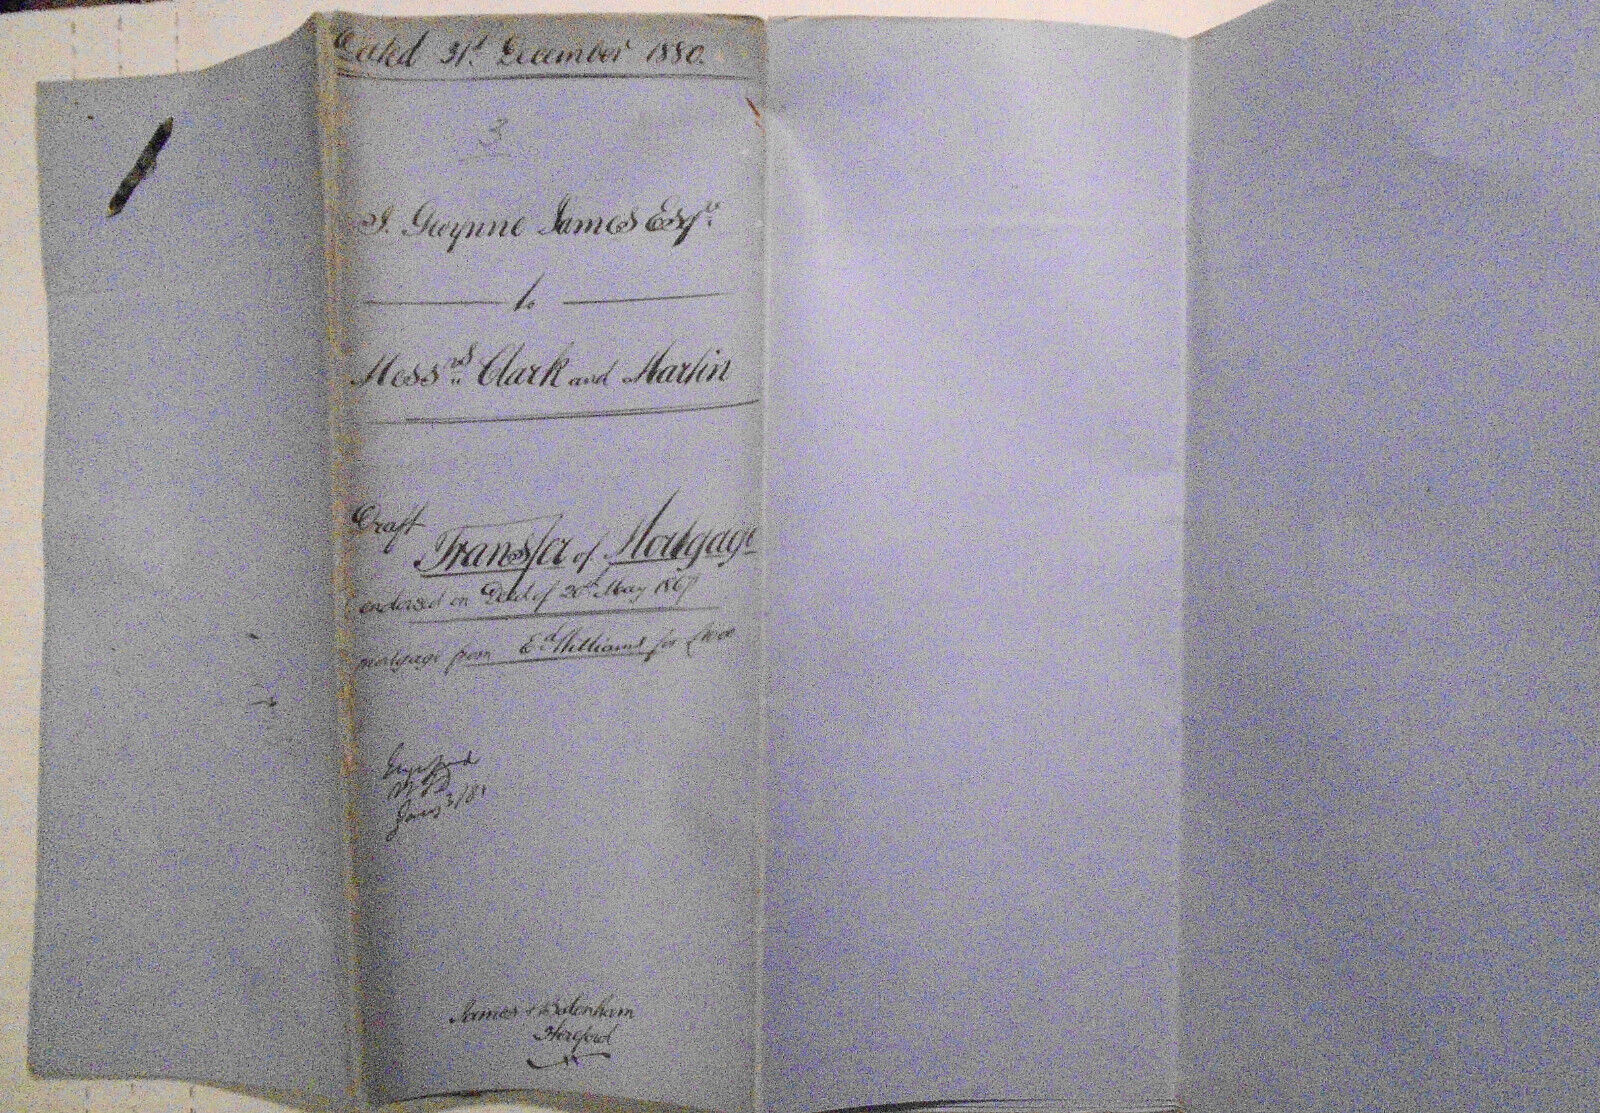 Dated 31st December 1880.
3
J. Gwynne James Esqre
to
Messrs Clark and Martin
Draft
Transfer of Mortgage
endorsed on Deed of 20th May 1867
mortgage from Ed Williams for
Jany 3/81
James & Bodenham
Hereford